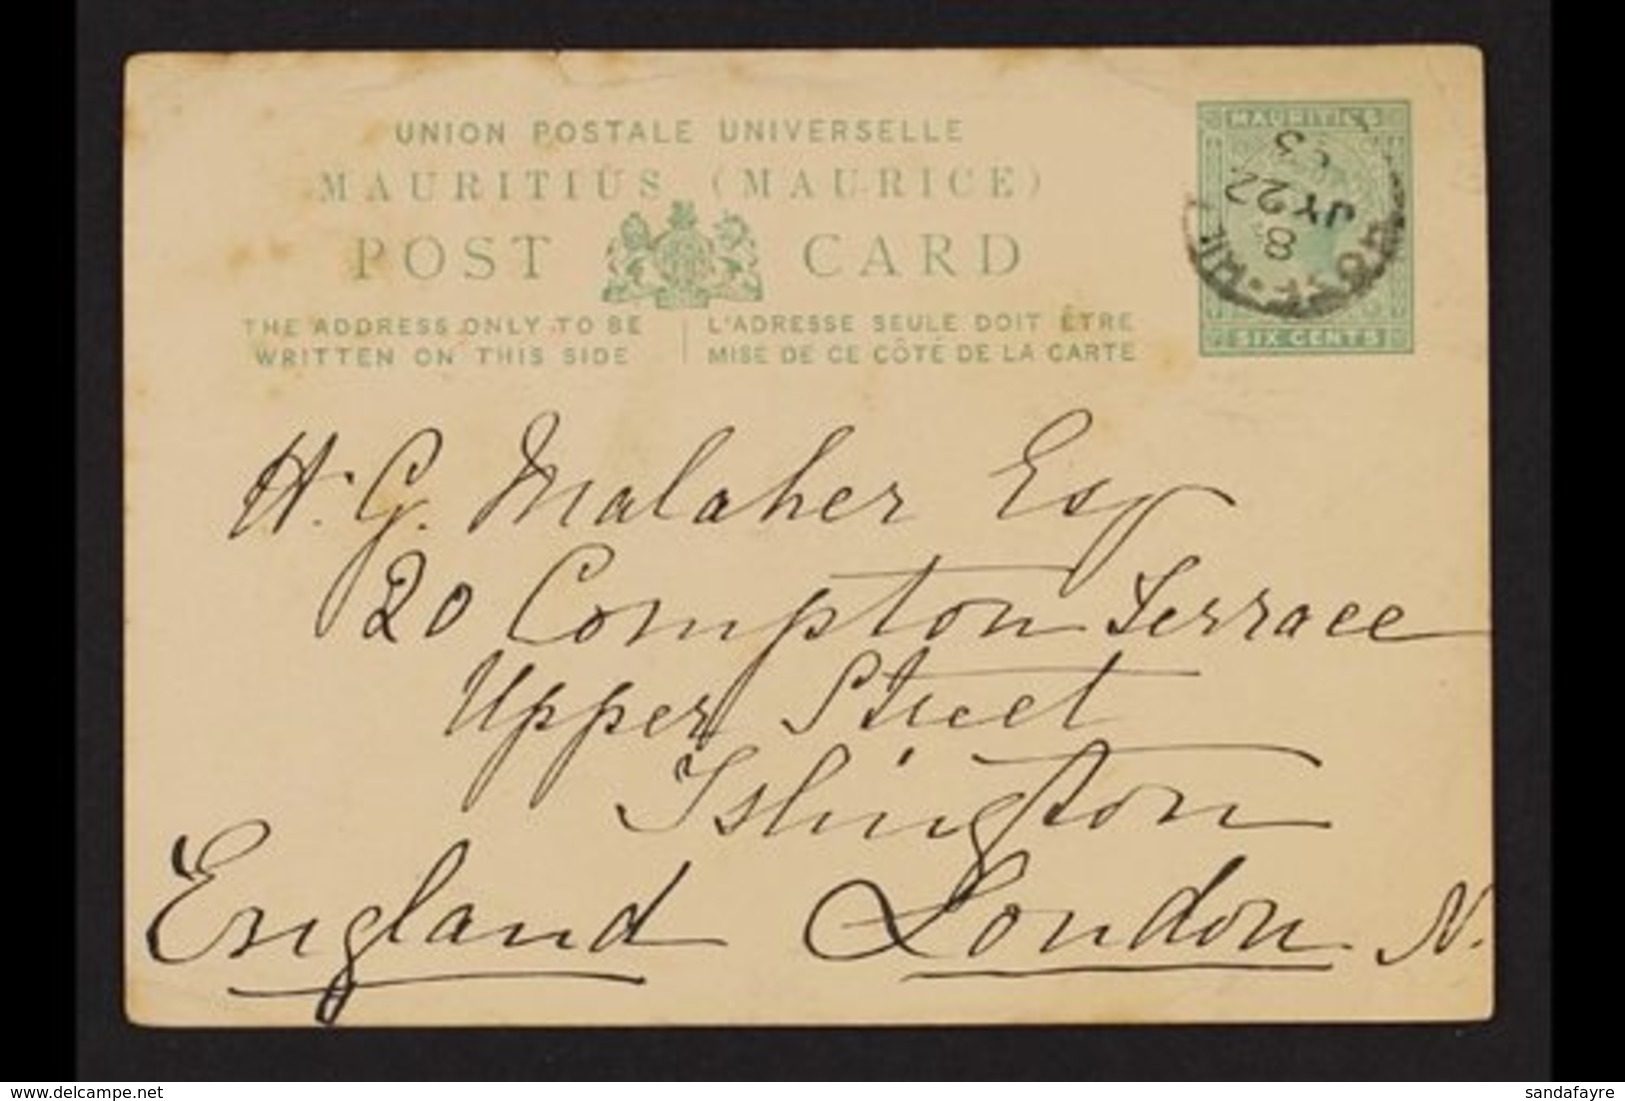 UNION POSTALE UNIVERSELLE
MAURITIUS (MAURICE)
POST CARD
THE ADDRESS ONLY TO BE WRITTEN ON THIS SIDE
L'ADRESSE SEULE DOIT ÊTRE MISE DE CE CÔTE DE LA CARTE
MAURITIUS
SIX CENTS
8
JY 22
H. G. Malaher Esq
20 Compton Terrace
Upper Street
Islington
England London N.
delcampe.net
sandafayre